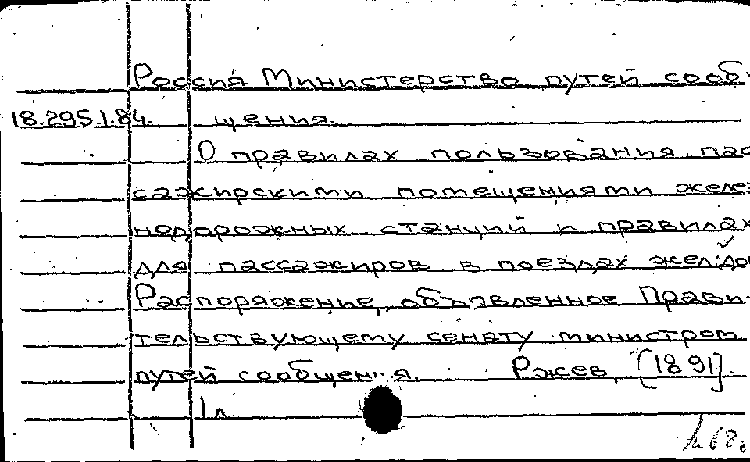 Россия Министерство путей сооб-
18.295.1.84. щения.
О правилах пользования пас
сажирскими помещениями желез
нодорожных станций и правилах
для пассажиров в поездах жел.до
Распоряжение, объявленное Прави
тельствующему сенату министром
путей сообщения. Ржев, [1891].
1 л